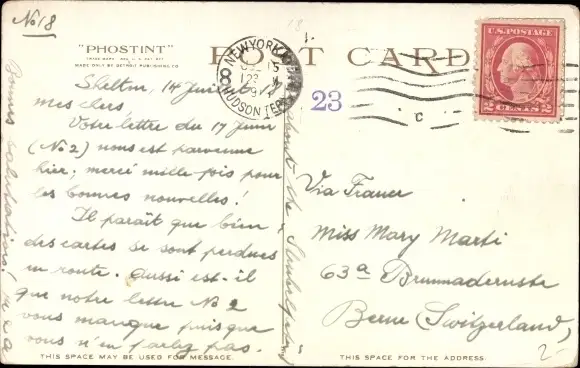 No 18
"PHOSTINT"
TRADE MARK REG. U.S. PAT. OFF.
MADE ONLY BY DETROIT PUBLISHING CO.
POST CARD
Shelton, 14 Juillet
mes chers,
Votre lettre du 17 Juin
(No 2) nous est parvenue
hier, merci mille fois pour
les bonnes nouvelles!
Il paraît que bien
des cartes se sont perdues
en route. Aussi est-il
que notre lettre No 2
vous manque puisque
vous n'en parlez pas.
THIS SPACE MAY BE USED FOR MESSAGE.
Bonnes salutations.
about the
NEW YORK, N.Y.
HUDSON TER
8
23
C
U.S. POSTAGE
2 CENTS 2
Via France
Miss Mary Marti
63a
Berne (Switzerland)
2-
THIS SPACE IS FOR THE ADDRESS.